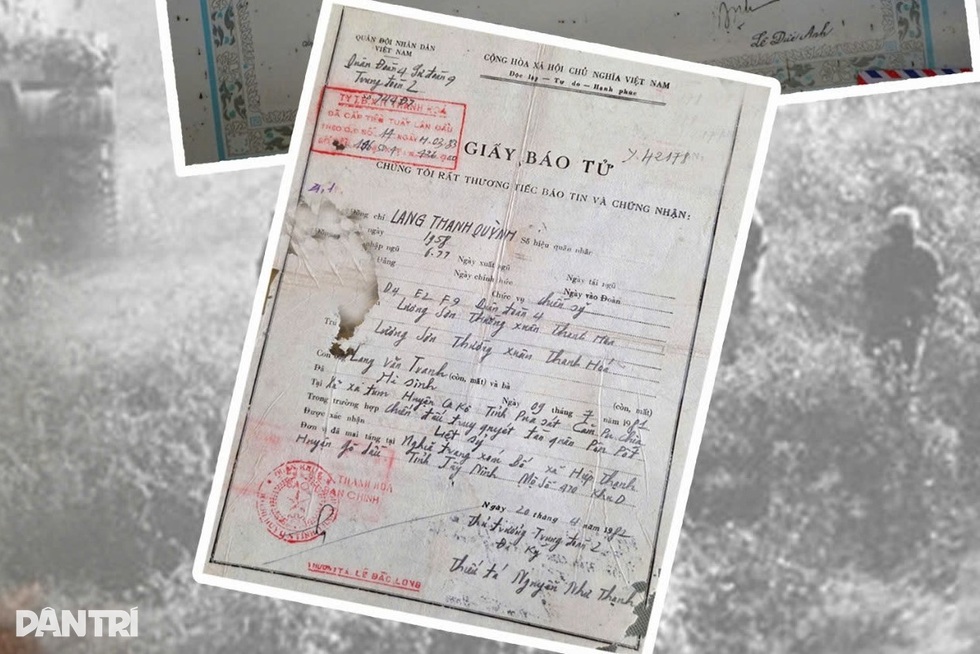 Lê Đức Anh
QUÂN ĐỘI NHÂN DÂN
VIỆT NAM
CỘNG HÒA XÃ HỘI CHỦ NGHĨA VIỆT NAM
Độc lập — Tự do — Hạnh phúc
Quân Đoàn 4 Sư đoàn 9
Trung đoàn 2
THANH HÓA
ĐÃ CẤP TIỀN TUẤT LẦN ĐẦU
THEO Q.Đ SỐ NGÀY
GIẤY BÁO TỬ
Y.42171
CHÚNG TÔI RẤT THƯƠNG TIẾC BÁO TIN VÀ CHỨNG NHẬN:
chí LANG THANH QUỲNH Số hiệu quân nhân
ngày 1958
nhập ngũ 6.77 Ngày xuất ngũ Ngày tái ngũ
Đảng Ngày chính thức Ngày vào Đoàn
Chức vụ chiến sỹ
D4 E2 F9 Quân đoàn 4
Lương Sơn Thường xuân Thanh Hóa
Lương Sơn Thường xuân Thanh Hóa
Con Lang văn Tranh (còn, mất) và bà (còn, mất)
Đã Hi sinh Ngày 09 tháng 7 năm 1981
Tại xã Huyện Tỉnh Cam Pu Chia
Trong trường hợp chiến đấu truy quyét tàn quân Pôn Pốt
Được xác nhận Liệt sỹ
Đơn vị đã mai táng tại Nghĩa trang xóm Bố xã Hiệp Thạnh
Huyện Gò Dầu Tỉnh Tây Ninh Mộ Số 470 Khu D
Ngày 20 tháng 4 năm 1982
Thủ trưởng Trung đoàn 2
Đã Ký
Thiếu tá Nguyễn Như Thạnh
THANH HÓA
BAN CHÍNH
LÊ ĐẮC LONG
DÂN TRÍ